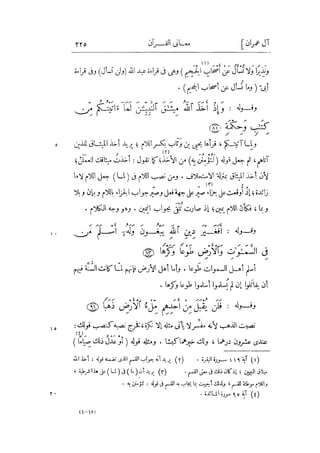 آل عمران ] معانى القرآن ٢٢٥
ونذيرا ولا تُسأل عن أصحاب الجحيم ) (١) وهى فى قراءة عبد الله (ولن تسأل) وفى قراءة
أبىّ ( وما تُسأل عن أصحاب الجحيم ) .
وقوله : وَإِذْ أَخَذَ اللَّهُ مِيثَٰقَ النَّبِيِّـۧنَ لَمَآ ءَاتَيْتُكُم مِّن
كِتَٰبٍ وَحِكْمَةٍ ٨١
ولما آتيتكم ، قرأها يحيى بن وثاب بكسر اللام ؛ يريد أخذ الميثاق للذين ٥
آتاهم ، ثم جعل قوله (لَتُؤْمِنُنَّ بِهِ) من الأخذ (٢) ؛ كما تقول : أخذتُ ميثاقك لتعملنّ ؛
لأن أخذ الميثاق بمنزلة الاستحلاف . ومن نصب اللام فى (لَما) جعل اللام لاما
زائدة ؛ إذ أُوقعت على جزاء (٣) صيّر على جهة فعل وصيّر جواب الجزاء باللام وبإن وبلا
وبما ، فكأن اللام يمين ؛ إذ صارت تُلْقَى بجواب اليمين . وهو وجه الكلام .
وقوله : أَفَغَيْرَ دِينِ اللَّهِ يَبْغُونَ وَلَهُۥٓ أَسْلَمَ مَن ١٠
فِى السَّمَٰوَٰتِ وَالْأَرْضِ طَوْعًا وَكَرْهًا ٨٣
أسلم أهل السموات طوعا . وأما أهل الأرض فإنهم لما كانت السُّنة فيهم
أن يقاتَلوا إن لم يُسلموا أسلموا طوعا وكرها .
وقوله : فَلَن يُقْبَلَ مِنْ أَحَدِهِم مِّلْءُ الْأَرْضِ ذَهَبًا ٩١
نصبت الذهب لأنه مفسِّر لا يأتى مثله إلا نكرة ، فخرج نصبه كنصب قولك : ١٥
عندى عشرون درهما ، ولك خيرهما كبشا . ومثله قوله ( أَوْ عَدْلُ ذَلِكَ صِيَامًا ) (٤)
(١) آية ١١٩ سورة البقرة . (٢) يريد أنه جواب القسم الذى تضمنه قوله : أخذ الله
ميثاق النبيين ؛ إذ كان ذلك فى معنى القسم . (٣) يريد أن (ما) فى (لما) على هذا شرطية ،
واللام موطئة للقسم ، ولذلك أجيبت بما يجاب به القسم فى قوله : لتؤمنن به .
(٤) آية ٩٥ سورة المائدة . ٢٠